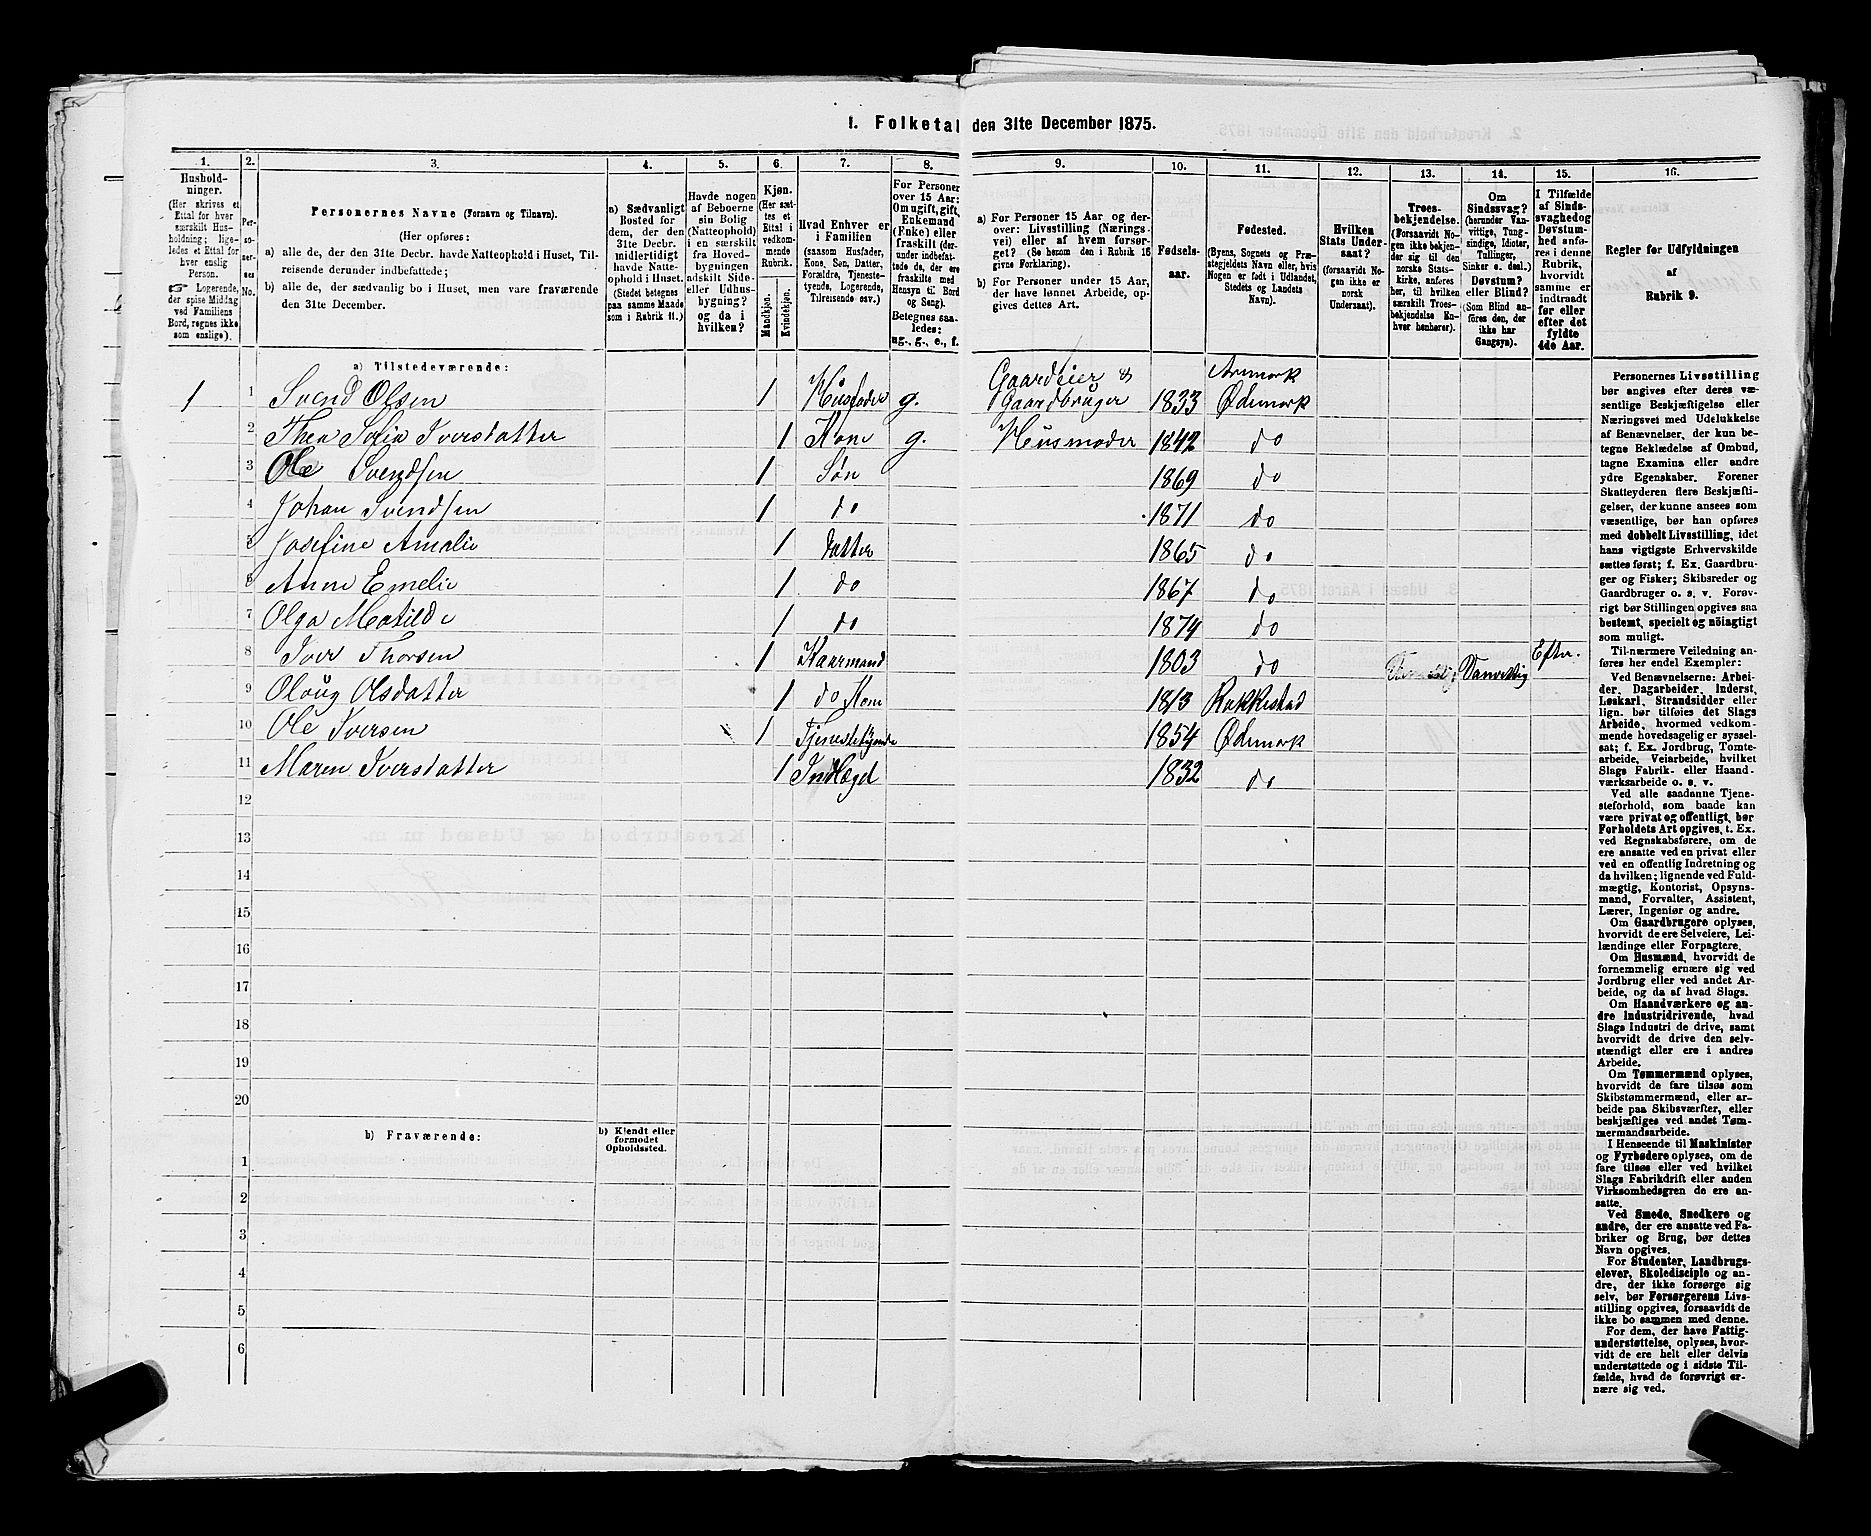 1. Folketal den 31te December 1875.
1. 2. 3. 4. 5. 6. 7. 8. 9. 10. 11. 12. 13. 14. 15. 16.
Hushold-
ninger.
(Her skrives et
Ettal for hver
særskilt Hus-
holdning; lige-
ledes et Ettal for
hver enslig
Person.
☞ Logerende,
der spise Middag
ved Familiens
Bord, regnes ikke
som enslige).
Per-
so-
ner-
nes
No.
Personernes Navne (Fornavn og Tilnavn).
(Her opføres:
a) alle de, der den 31te Decbr. havde Natteophold i Huset, Til-
reisende derunder indbefattede;
b) alle de, der sædvanlig bo i Huset, men vare fraværende
den 31te December.
a) Sædvanligt
Bosted for
dem, der den
31te Decbr.
midlertidigt
havde Natte-
ophold i Huset.
(Stedet betegnes
paa samme Maade
som i Rubrik 11.)
Havde nogen
af Beboerne
sin Bolig
(Natteophold)
i en særskilt
fra Hoved-
bygningen
adskilt Side-
eller Udhus-
bygning?
og da i
hvilken?
Kjøn.
(Her sæt-
tes et
Ettal i
vedkom-
mende
Rubrik.
Mandkjøn.
Kvindekjøn.
Hvad Enhver er
i Familien
(saasom Husfader,
Kone, Søn, Datter,
Forældre, Tjeneste-
tyende, Logerende,
Tilreisende osv.)
For Personer
over 15 Aar:
Om ugift, gift,
Enkemand
(Enke) eller
fraskilt (der-
under indbefat-
tede de, der ere
fraskilte med
Hensyn til Bord
og Seng).
Betegnes saa-
ledes:
ug., g., e., f.
a) For Personer 15 Aar og der-
over: Livsstilling (Nærings-
vei) eller af hvem forsør-
get? (Se herom den i Rubrik 16
givne Forklaring).
b) For Personer under 15 Aar,
der have lønnet Arbeide, op-
gives dettes Art.
Fødsels-
aar.
Fødested.
(Byens, Sognets og Præ-
stegjeldets Navn eller, hvis
Nogen er født i Udlandet,
Stedets og Landets
Navn).
Hvilken
Stats Under-
saat?
(forsaavidt No-
gen ikke er
norsk
Undersaat).
Troes-
bekjendelse.
(Forsaavidt No-
gen ikke bekjen-
der sig til den
norske Stats-
kirke, anføres
her, til hvilken
særskilt Troes-
bekjendelse En-
hver henhører).
Om
Sindssvag?
(herunder Van-
vittige, Tung-
sindige, Idioter,
Tullinger,
Sinker o. desl.)
Døvstum?
eller Blind?
(Som Blind an-
føres den, der
ikke har
Gangsyn).
I Tilfælde
af Sinds-
svaghed og
Døvstum-
hed anfø-
res i denne
Rubrik,
hvorvidt
samme er
indtraadt
før eller
efter det
fyldte
4de Aar.
Regler for Udfyldningen
af
Rubrik 9.
a) Tilstedeværende:
1 1 Svend Olsen 1 Husfader g. Gaardeier & Gaardbruger 1833 Aremark Ødemark
2 Thea Sofia Iversdatter 1 Kone g. Husmoder 1842 do
3 Ole Svendsen 1 Søn 1869 do
4 Johan Svendsen 1 do 1871 do
5 Josefine Amalie 1 datter 1865 do
6 Anne Emelie 1 do 1867 do
7 Olga Matilde 1 do 1874 do
8 Iver Thorsen 1 Kaarmand 1803 do Vanvittig Efter.
9 Oloug Olsdatter 1 do Kone 1813 Rakkestad
10 Ole Iversen 1 Tjenestetyende 1854 Ødemark
11 Maren Iversdatter 1 Indlægd 1832 do
12
13
14
15
16
17
18
19
20
b) Fraværende:
b) Kjendt eller
formodet
Opholdssted.
1
2
3
4
5
6
Personernes Livsstilling
bør angives efter deres væ-
sentlige Beskjæftigelse eller
Næringsvei med Udelukkelse
af Benævnelser, der kun be-
tegne Beklædelse af Ombud,
tagne Examina eller andre
ydre Egenskaber. Forener
Skatteyderen flere Beskjæfti-
gelser, der kunne ansees som
væsentlige, bør han opføres
med dobbelt Livsstilling, idet
hans vigtigste Erhvervskilde
sættes først; f. Ex. Gaardbru-
ger og Fisker; Skibsreder og
Gaardbruger o. s. v. Forøv-
rigt bør Stillingen opgives saa
bestemt, specielt og nöiagtigt
som muligt.
Til nærmere Veiledning an-
føres her endel Exempler:
Ved Benævnelserne: Arbei-
der, Dagarbeider, Inderst,
Løskarl, Strandsidder eller
lign. bør tilføies det Slags
Arbeide, hvormed vedkom-
mende hovedsagelig er syssel-
sat; f. Ex. Jordbrug, Tomte-
arbeide, Veiarbeide, hvilket
Slags Fabrik- eller Haand-
værksarbeide o. s. v.
Ved alle saadanne Tjene-
steforhold, som baade kan
være privat og offentligt, bør
Forholdets Art opgives, t. Ex.
ved Regnskabsførere, om de
ere ansatte ved en privat eller
ved en offentlig Indretning og
da hvilken; lignende ved Fuld-
mægtig, Kontorist, Opsyns-
mand, Forvalter, Assistent,
Lærer, Ingeniør og andre.
Om Gaardbrugere oplyses,
hvorvidt de ere Selveiere, Lei-
lændinge eller Forpagtere.
Om Husmænd, hvorvidt de
fornemmelig ernære sig ved
Jordbrug eller ved andet Ar-
beide, og da af hvad Slags.
Om Haandværkere og an-
dre Industridrivende, hvad
Slags Industri de drive, samt
hvorvidt de drive den selv-
stændigt eller ere i andres
Arbeide.
Om Tømmermænd oplyses,
hvorvidt de fare tilsøs som
Skibstømmermænd, eller ar-
beide paa Skibsværfter, eller
beskjæftiges ved andet Tøm-
mermandsarbeide.
I Henseende til Maskinister
og Fyrbødere oplyses, om de
fare tilsøs eller ved hvilket
Slags Fabrikdrift eller anden
Virksomhedsgren de ere an-
satte.
Ved Smede, Snedkere og
andre, der ere ansatte ved Fa-
briker og Brug, bør dettes
Navn opgives.
For Studenter, Landbrugs-
elever, Skoledisciple og an-
dre, der ikke forsørge sig
selv, bør Forsørgerens Livs-
stilling opgives, forsaavidt de
ikke bo sammen med denne.
For dem, der have Fattig-
understøttelse, oplyses, hvor-
vidt de ere helt eller delvis
understøttede og i sidste Til-
fælde, hvad de forøvrigt er-
nære sig ved.